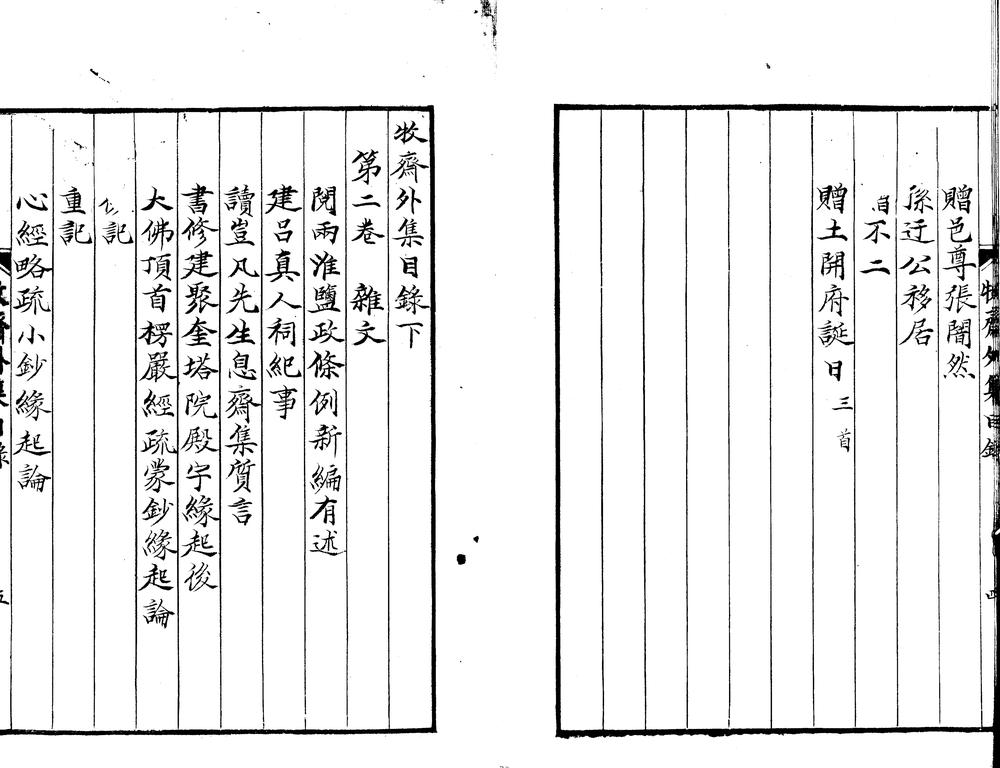 贈邑尊張闇然
孫迂公移居
不二
贈土開府誕日 三首
牧齋外集目錄 四
牧齋外集目錄下
第二卷 雜文
閱兩淮鹽政條例新編有述
建呂真人祠紀事
讀豈凡先生息齋集質言
書修建聚奎塔院殿宇緣起後
大佛頂首楞嚴經疏蒙鈔緣起論
記
重記
心經略疏小鈔緣起論
牧齋外集目錄 五